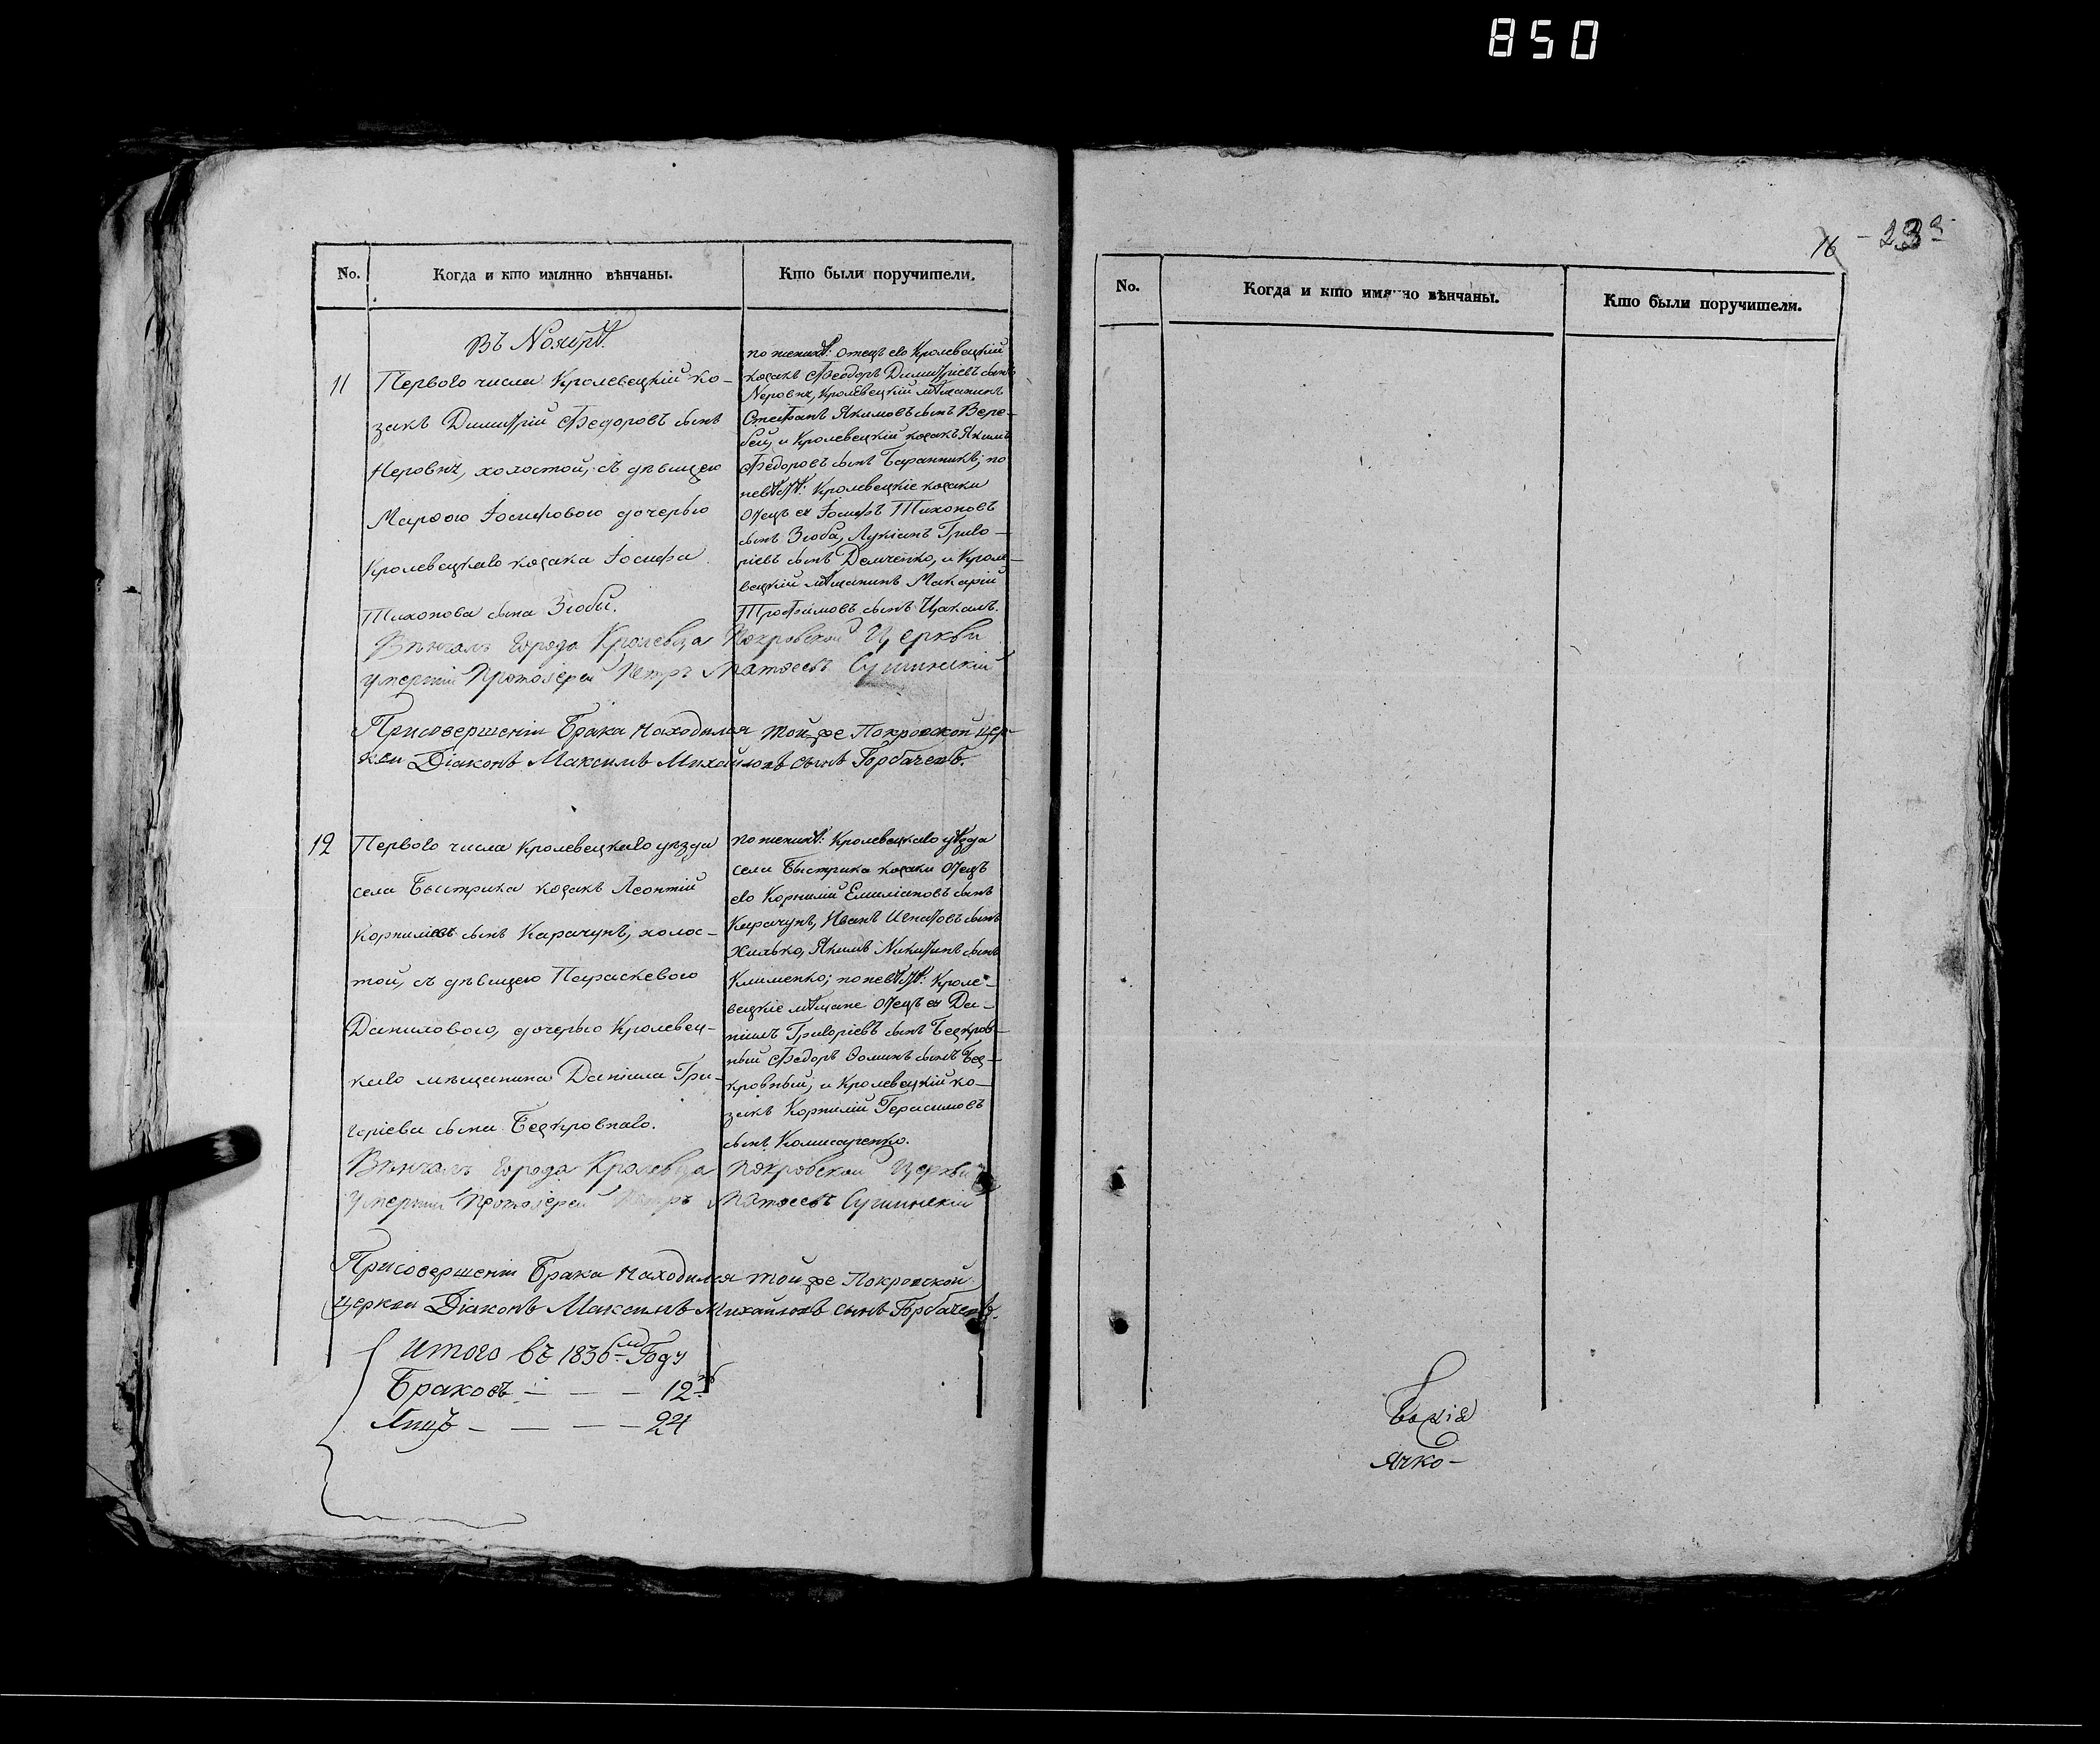 850
No.
Когда и кто имянно вѣнчаны.
Кто были поручители.
Въ Ноябрѣ.
11
Перваго числа Кролевецкій ко-
закъ Димитрій Феодоровъ сынъ
Неровнъ, холостой, съ дѣвицею
Марѳою Іосифовою дочерью
Кролевецкаго козака Іосифа
Тихонова сына Зюбы.
по женихѣ: отецъ его Кролевецкій
козакъ Феодоръ Димитріевъ сынъ
Неровнъ, Кролевецкій мѣщанинъ
Стефанъ Якимовъ сынъ Вере-
бей, и Кролевецкій козакъ Якимъ
Феодоровъ сынъ Баранникъ; по
невѣстѣ: Кролевецкіе козаки
отецъ ея Іосифъ Тихоновъ
сынъ Зюба, Лукіанъ Григо-
ріевъ сынъ Демченко, и Кроле-
вецкій мѣщанинъ Макарій
Трофимовъ сынъ Цакалъ.
Вѣнчалъ города Кролевца Покровской Церкви
умершій Протоіерей Петръ Матѳеевъ Сушинскій
При совершеніи Брака находился той же Покровской цер-
кви Діаконъ Максимъ Михайловъ сынъ Горбачевъ.
12
Перваго числа Кролевецкаго уѣзда
села Быстрика козакъ Леонтій
Корниліевъ сынъ Карачунъ, холос-
той, съ дѣвицею Параскевою
Даниловою, дочерью Кролевец-
каго мѣщанина Даніила Гри-
горіева сына Безкровнаго.
по женихѣ: Кролевецкаго уѣзда
села Быстрика козаки отецъ
его Корнилій Емиліановъ сынъ
Карачунъ, Иванъ Игнатовъ сынъ
Хилько, Якимъ Никитинъ сынъ
Клименко; по невѣстѣ: Кроле-
вецкіе мѣщане отецъ ея Да-
ніилъ Григоріевъ сынъ Безкров-
ный Феодоръ Ѳоминъ сынъ Без-
кровный; и Кролевецкій ко-
закъ Корнилій Герасимовъ
сынъ Комисаренко.
Вѣнчалъ города Кролевца Покровской Церкви
умершій Протоіерей Петръ Матѳеевъ Сушинскій
При совершеніи Брака находился той же Покровской
Церкви Діаконъ Максимъ Михайловъ сынъ Горбачевъ.
Итого въ 1836мъ Году
Браковъ - - - 12ть
Лицъ - - - - 24
16 - 23
No.
Когда и кто имянно вѣнчаны.
Кто были поручители.
Ячко-